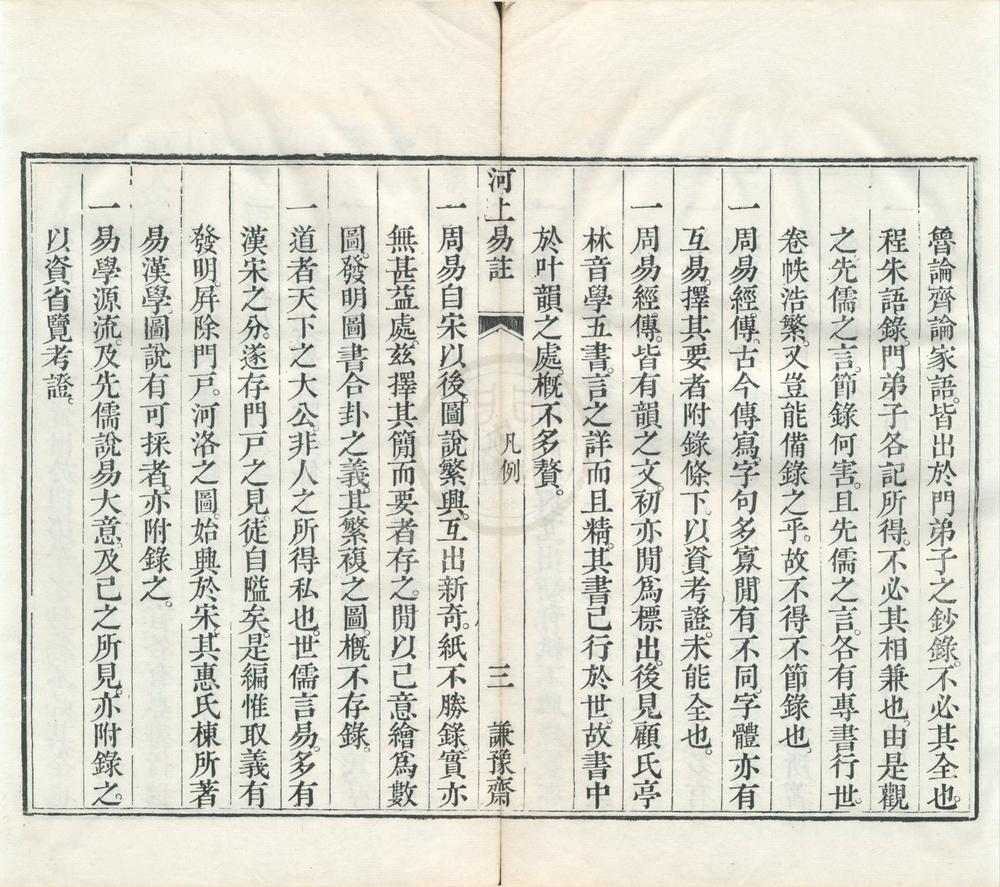 魯論齊論家語。皆出於門弟子之鈔錄。不必其全也。
程朱語錄。門弟子各記所得。不必其相兼也。由是觀
之先儒之言。節錄何害。且先儒之言。各有專書行世。
卷帙浩繁。又豈能備錄之乎。故不得不節錄也。
一周易經傳。古今傳寫。字句多寡。閒有不同。字體亦有
互易。擇其要者附錄條下。以資考證。未能全也。
一周易經傳。皆有韻之文。初亦閒爲標出。後見顧氏亭
林音學五書。言之詳而且精。其書已行於世。故書中
於叶韻之處。槪不多贅。
河上易註
凡例
三
謙豫齋
一周易自宋以後。圖說繁興。互出新奇。紙不勝錄。實亦
無甚益處。茲擇其簡而要者存之。閒以己意繪爲數
圖。發明圖書合卦之義。其繁複之圖。槪不存錄。
一道者天下之大公。非人之所得私也。世儒言易。多有
漢宋之分。遂存門戸之見。徒自隘矣。是編惟取義有
發明。屏除門戸。河洛之圖。始興於宋。其惠氏棟所著
易漢學。圖說有可採者。亦附錄之。
一易學源流。及先儒說易大意。及己之所見。亦附錄之。
以資省覽考證。